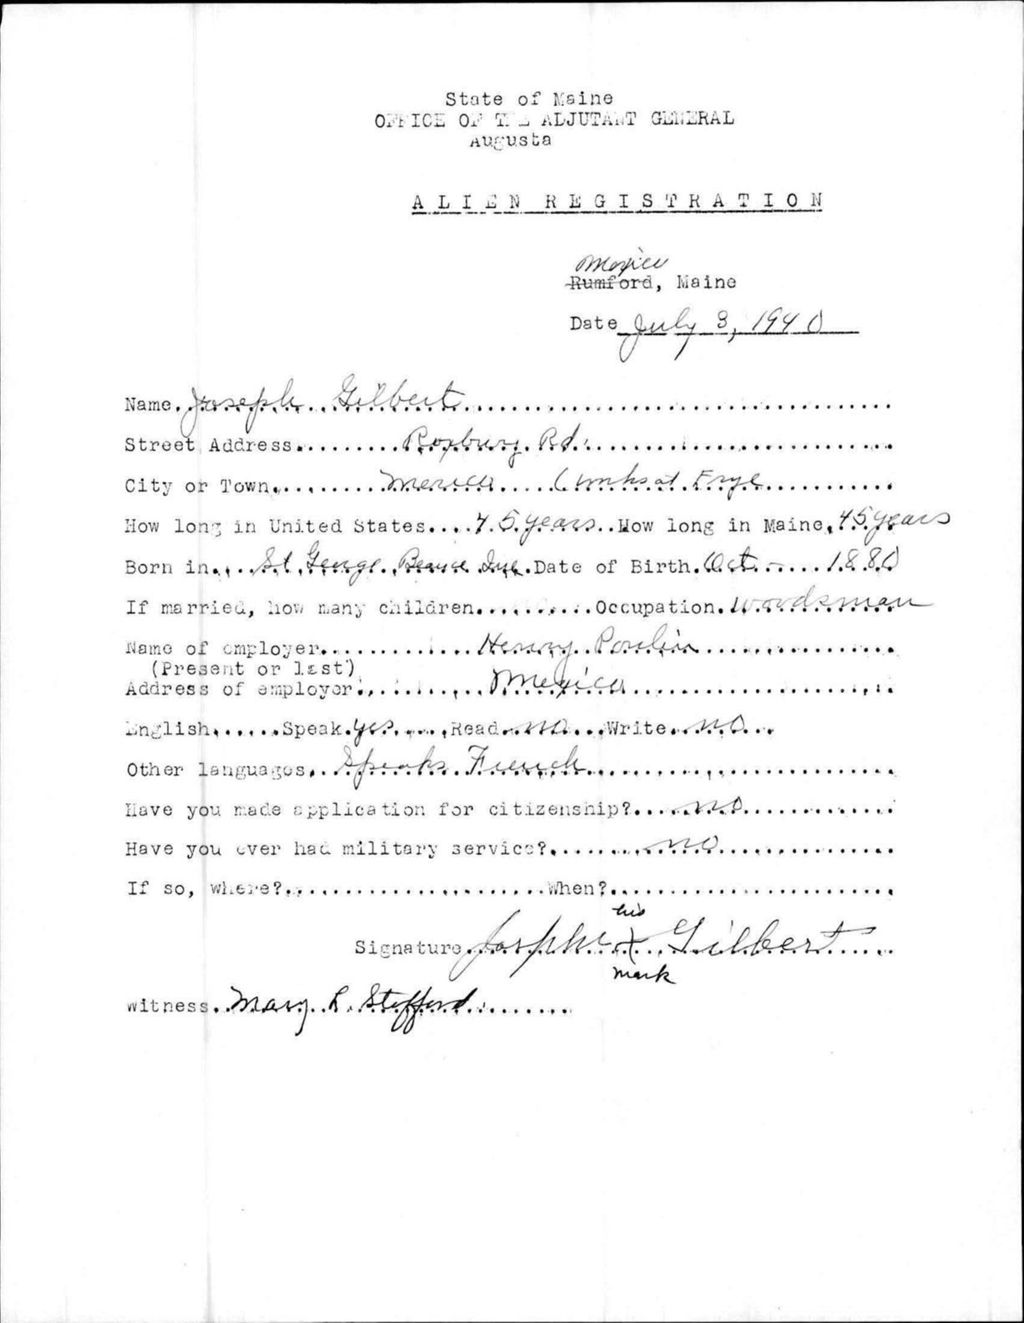 State of Maine
OFFICE OF THE ADJUTANT GENERAL
Augusta
ALIEN REGISTRATION
Mexico
Rumford, Maine
Date July 3, 1940
Name Joseph Gilbert
Street Address Roxbury Rd.
City or Town Mexico at Frye
How long in United States 45 years How long in Maine 45 years
Born in St George Beauce Date of Birth Oct 1880
If married, how many children Occupation woodsman
Name of employer Henry Poulin
(Present or last)
Address of employer Mexico
English Speak yes Read no Write no
Other languages Speaks French
Have you made application for citizenship? no
Have you ever had military service? no
If so, where? When?
his
Signature X Gilbert
mark
Witness Mary L. Stafford